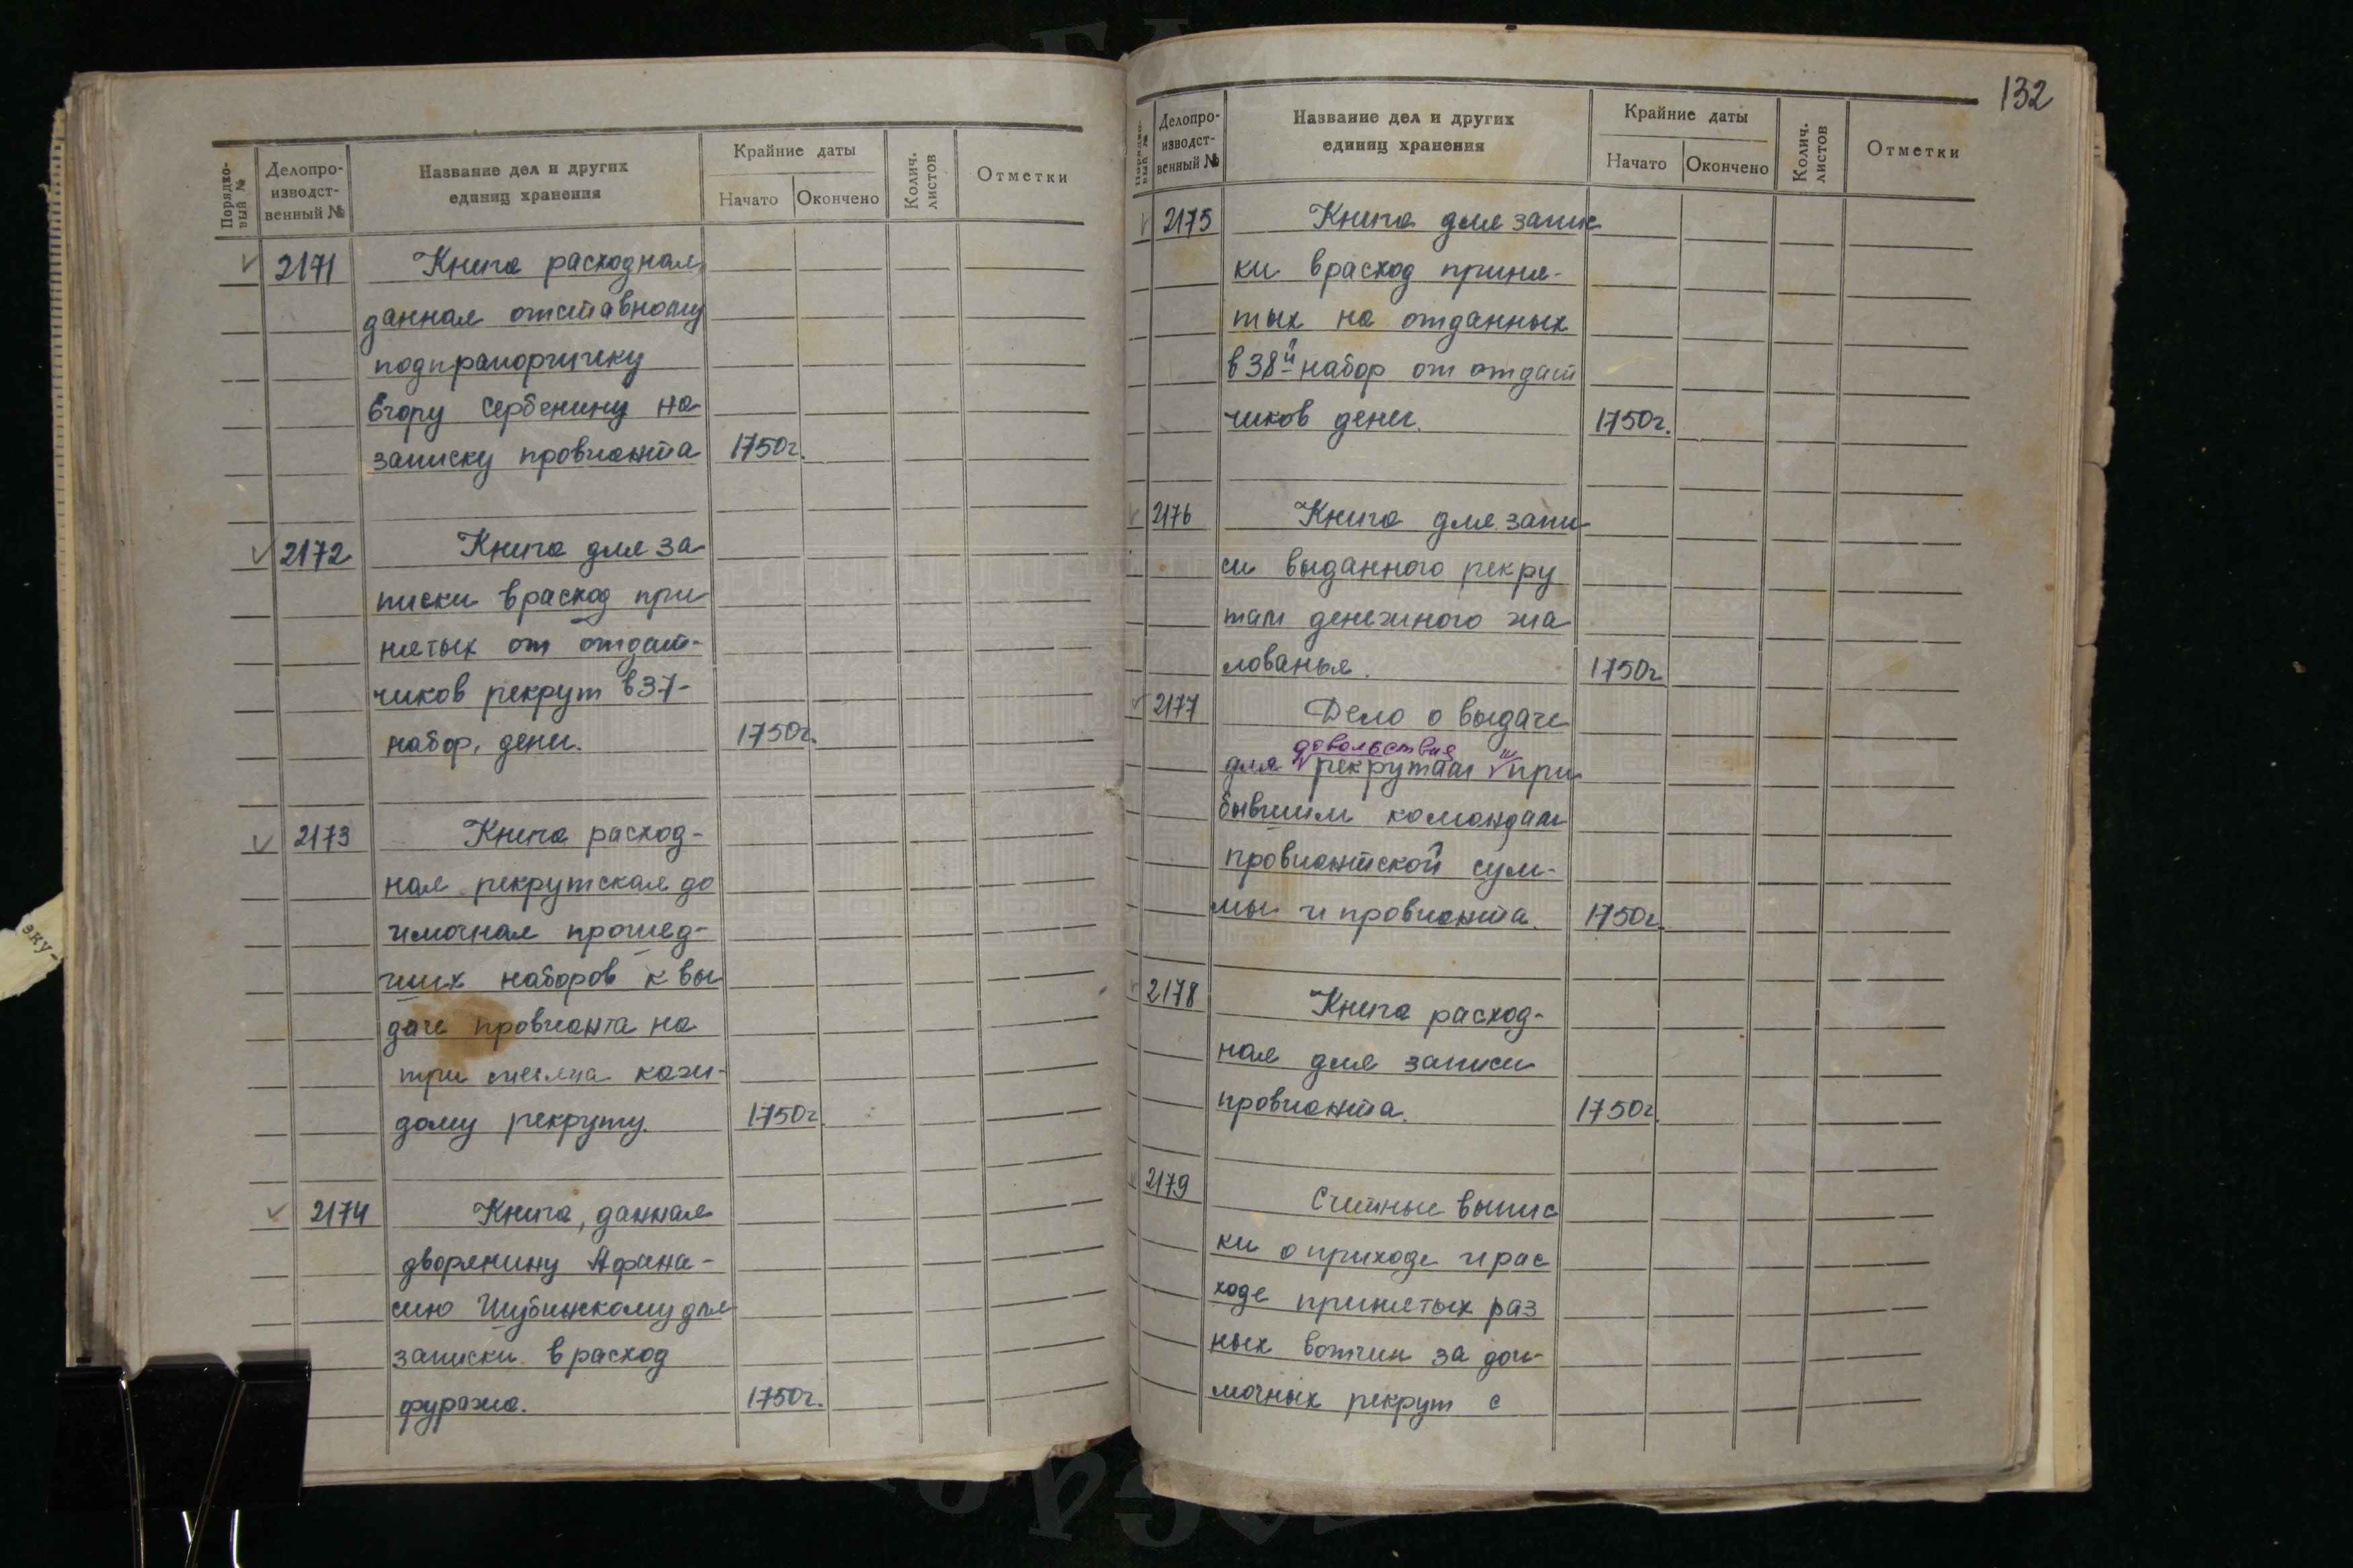 132
Порядко-
вый №
Делопро-
изводст-
венный №
Название дел и других
единиц хранения
Крайние даты
Начато
Окончено
Колич.
листов
Отметки
2171 Книга расходная
данная отставному
подпрапорщику
Егору Сербенину на
записку провианта 1750г.
2172 Книга для за
писки в расход при
нятых от отдат-
чиков рекрут в 37-
набор, денег. 1750г.
2173 Книга расход-
ная рекрутская до
имочная прошед-
ших наборов к вы
даче провианта на
три месяца каж-
дому рекруту. 1750г.
2174 Книга, данная
дворянину Афана-
сию Шубинскому для
записки в расход
фуража. 1750г.
Порядко-
вый №
Делопро-
изводст-
венный №
Название дел и других
единиц хранения
Крайние даты
Начато
Окончено
Колич.
листов
Отметки
2175 Книга для запис
ки в расход приня-
тых на отданных
в 38й набор от отдат
чиков денег. 1750г.
2176 Книга для запи
си выданного рекру
там денежного жа
лованья. 1750г.
2177 Дело о выдаче
довольствия
для рекрутам при
бывшим командам
провиантской сум-
мы и провианта. 1750г.
2178 Книга расход-
ная для записи
провианта. 1750г.
2179 Счетные выпис
ки о приходе и рас
ходе принятых раз
ных вотчин за дои-
мочных рекрут с
эку-